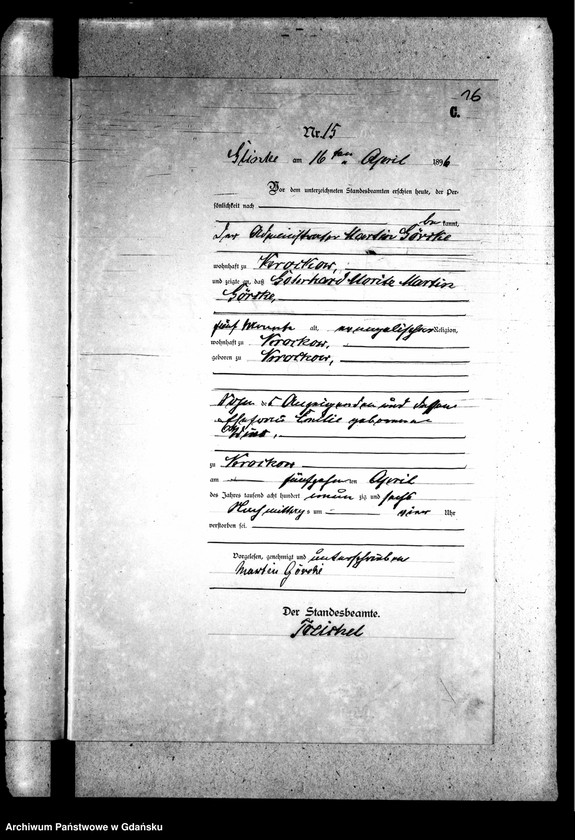 16
C.
Nr. 15
am 16ten April 1896
Vor dem unterzeichneten Standesbeamten erschien heute, der Per-
sönlichkeit nach
be kannt,
der Administrator Martin Görske
wohnhaft zu Krockow,
und zeigte an, daß Gerhard Moritz Martin
Görske,
fünf Monate alt, evangelischer Religion,
wohnhaft zu Krockow,
geboren zu Krockow,
Sohn des Anzeigenden und dessen
Ehefrau Emilie geborenen
zu Krockow
am fünfzehnten April
des Jahres tausend acht hundert neun zig und sechs
Nachmittags um vier Uhr
verstorben sei.
Vorgelesen, genehmigt und unterschrieben
Martin Görske
Der Standesbeamte.
Archiwum Państwowe w Gdańsku